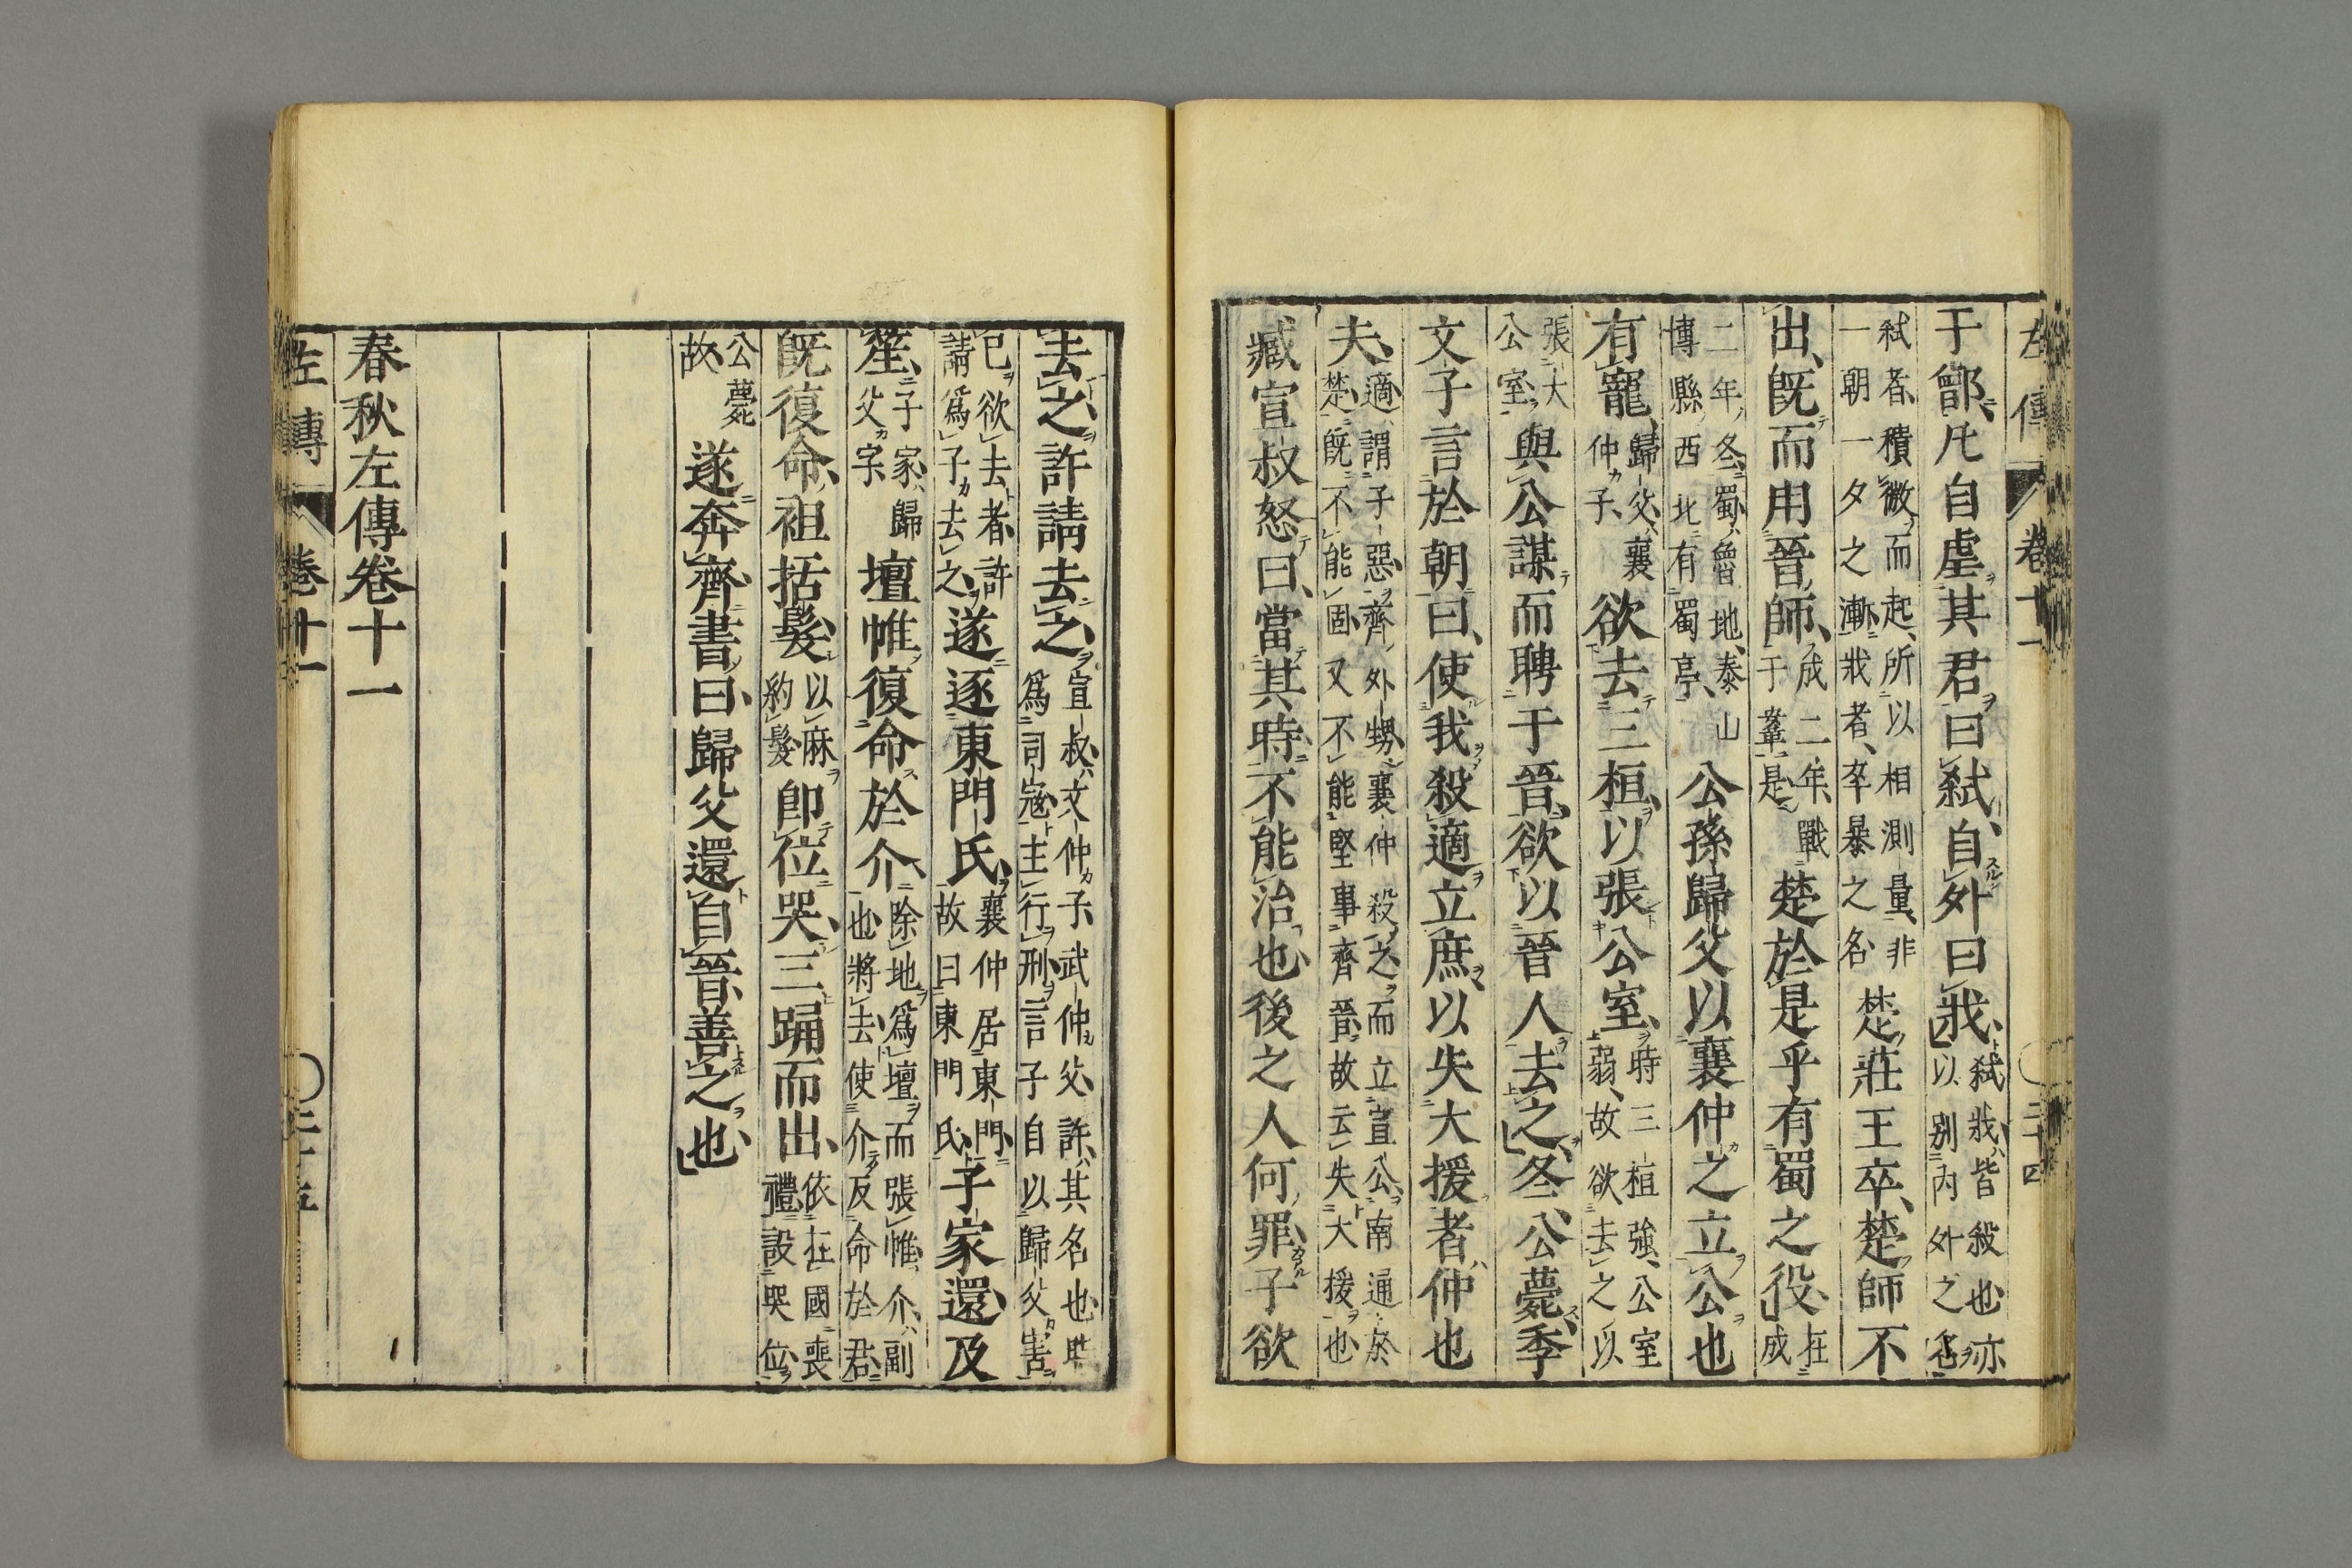 左傳 卷十一 二十四
于鄫凡自虐其君曰弑自外曰戕弑戕皆殺也亦以別內外之名
弑者積微而起所以相測量非一朝一夕之漸戕者卒暴之名楚莊王卒楚師不
出既而用晉師成二年戰于鞌是楚於是乎有蜀之役在成
二年冬蜀魯地泰山博縣西北有蜀亭公孫歸父以襄仲之立公也
有寵歸父襄仲子欲去三桓以張公室時三桓強公室弱故欲去之以
張大公室與公謀而聘于晉欲以晉人去之冬公薨季
文子言於朝曰使我殺適立庶以失大援者仲也
夫適謂子惡齊外甥襄仲殺之而立宣公南通於楚既不能固又不能堅事齊晉故云失大援也
臧宣叔怒曰當其時不能治也後之人何罪子欲
去之許請去之宣叔文仲子武仲父許其名也時爲司寇主行刑言子自以歸父害
已欲去者許請爲子去之遂逐東門氏襄仲居東門故曰東門氏子家還及
笙子家歸父字壇帷復命於介除地爲壇而張帷介副也將去使介反命於君
既復命袒括髮以麻約髮卽位哭三踊而出依在國喪禮設哭位
公薨故遂奔齊書曰歸父還自晉善之也
春秋左傳卷十一
左傳 卷十一 二十五